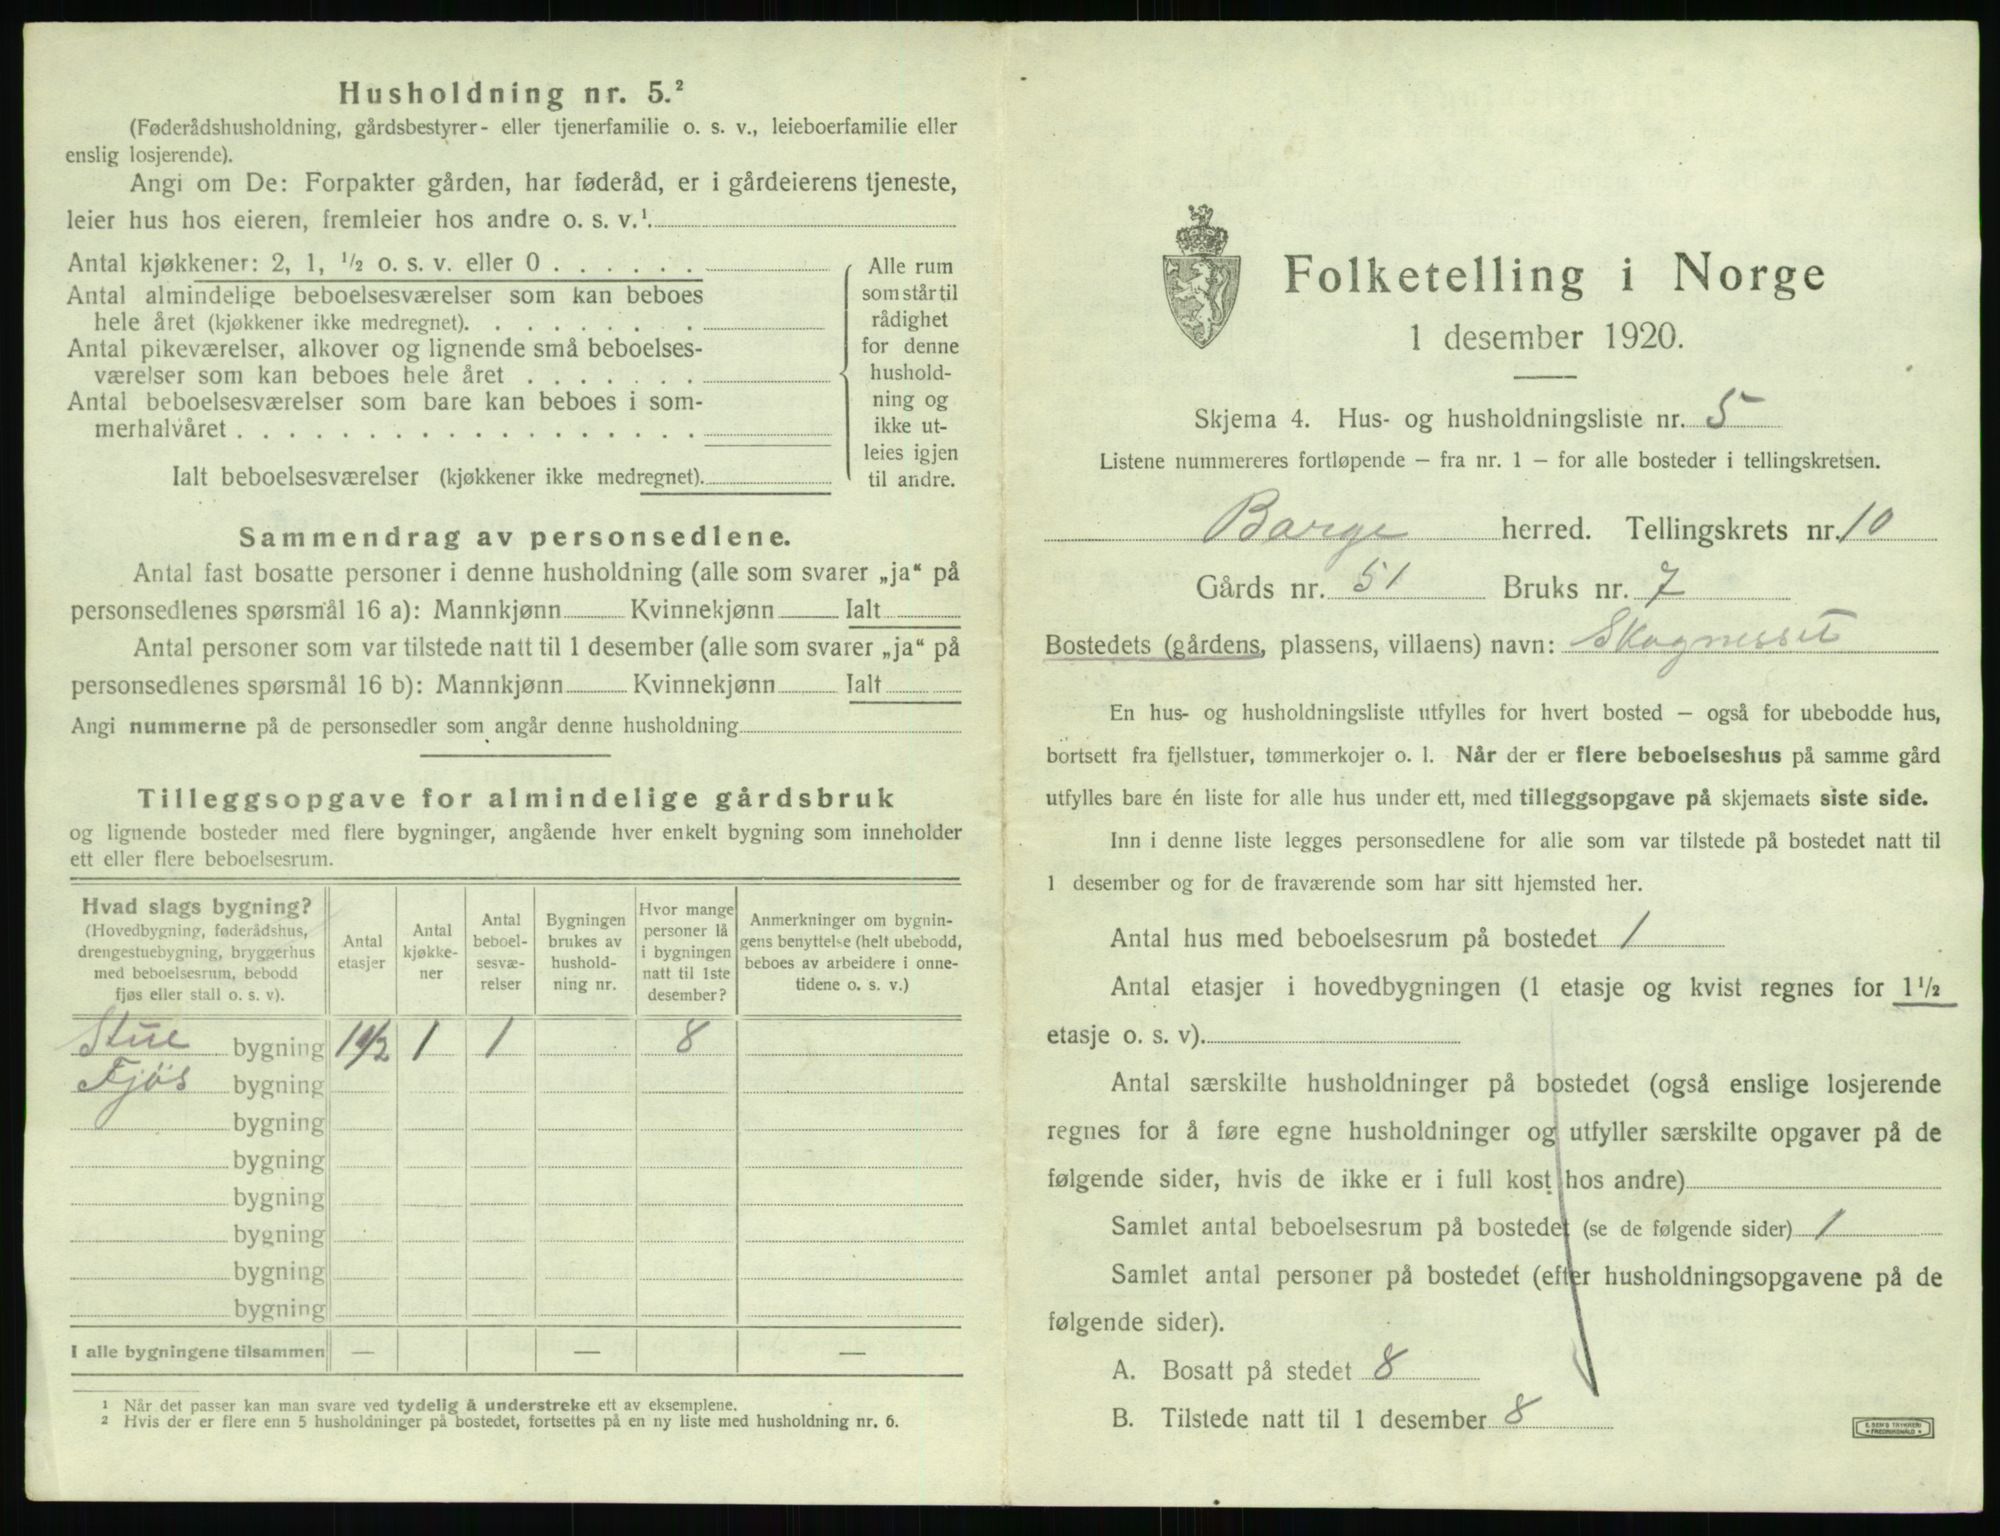 Husholdning nr. 5.²
(Føderådshusholdning, gårdsbestyrer- eller tjenerfamilie o. s. v., leieboerfamilie eller
enslig losjerende).
Angi om De: Forpakter gården, har føderåd, er i gårdeierens tjeneste,
leier hus hos eieren, fremleier hos andre o. s. v.¹
Antal kjøkkener: 2, 1, ½ o. s. v. eller 0 . . . . . .
Antal almindelige beboelsesværelser som kan beboes
hele året (kjøkkener ikke medregnet). . . . . . . . .
Antal pikeværelser, alkover og lignende små beboelses-
værelser som kan beboes hele året . . . . . . .
Antal beboelsesværelser som bare kan beboes i som-
merhalvåret . . . . . . . . . . . . . . . . . .
Ialt beboelsesværelser (kjøkkener ikke medregnet).
Alle rum
som står til
rådighet
for denne
hushold-
ning og
ikke ut-
leies igjen
til andre.
Sammendrag av personsedlene.
Antal fast bosatte personer i denne husholdning (alle som svarer „ja“ på
personsedlenes spørsmål 16 a): Mannkjønn Kvinnekjønn Ialt
Antal personer som var tilstede natt til 1 desember (alle som svarer „ja“ på
personsedlenes spørsmål 16 b): Mannkjønn Kvinnekjønn Ialt
Angi nummerne på de personsedler som angår denne husholdning
Tilleggsopgave for almindelige gårdsbruk
og lignende bosteder med flere bygninger, angående hver enkelt bygning som inneholder
ett eller flere beboelsesrum.
Hvad slags bygning?
(Hovedbygning, føderådshus,
drengestuebygning, bryggerhus
med beboelsesrum, bebodd
fjøs eller stall o. s. v).
Antal
etasjer
Antal
kjøkke-
ner
Antal
beboel-
sesvæ-
relser
Bygningen
brukes av
hushold-
ning nr.
Hvor mange
personer lå
i bygningen
natt til 1ste
desember?
Anmerkninger om bygnin-
gens benyttelse (helt ubebodd,
beboes av arbeidere i onne-
tidene o. s. v.)
Stue bygning 1 1/2 1 1 8
Fjøs bygning
bygning
bygning
bygning
bygning
bygning
bygning
I alle bygningene tilsammen — — —
¹ Når det passer kan man svare ved tydelig å understreke ett av eksemplene.
² Hvis der er flere enn 5 husholdninger på bostedet, fortsettes på en ny liste med husholdning nr. 6.
Folketelling i Norge
1 desember 1920.
Skjema 4. Hus- og husholdningsliste nr. 5
Listene nummereres fortløpende – fra nr. 1 – for alle bosteder i tellingskretsen.
Borge herred. Tellingskrets nr. 10
Gårds nr. 51 Bruks nr. 7
Bostedets (gårdens, plassens, villaens) navn:
En hus- og husholdningsliste utfylles for hvert bosted – også for ubebodde hus,
bortsett fra fjellstuer, tømmerkojer o. l. Når der er flere beboelseshus på samme gård
utfylles bare én liste for alle hus under ett, med tilleggsopgave på skjemaets siste side.
Inn i denne liste legges personsedlene for alle som var tilstede på bostedet natt til
1 desember og for de fraværende som har sitt hjemsted her.
Antal hus med beboelsesrum på bostedet 1
Antal etasjer i hovedbygningen (1 etasje og kvist regnes for 1½
etasje o. s. v).
Antal særskilte husholdninger på bostedet (også enslige losjerende
regnes for å føre egne husholdninger og utfyller særskilte opgaver på de
følgende sider, hvis de ikke er i full kost hos andre)
Samlet antal beboelsesrum på bostedet (se de følgende sider) 1
Samlet antal personer på bostedet (efter husholdningsopgavene på de
følgende sider).
A. Bosatt på stedet 8
B. Tilstede natt til 1 desember 8